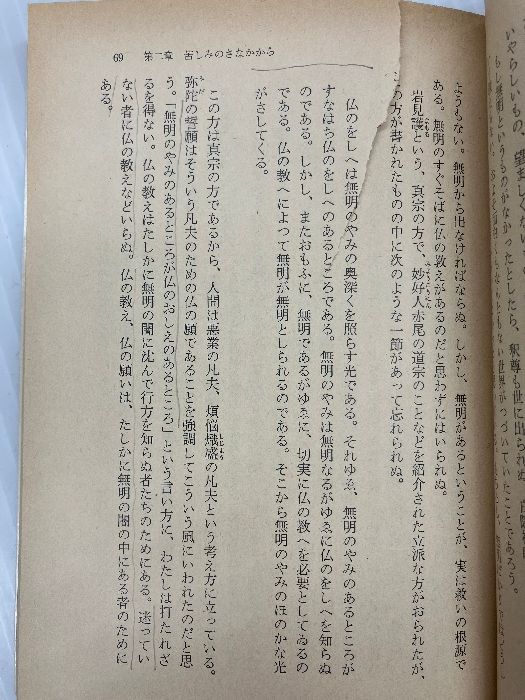 69　第二章　苦しみのさなかから
ようもない。無明から出なければならぬ。しかし、無明があるということが、実は救いの根源で
ある。無明のすぐそばに仏の教えがあるのだと思わずにはいられぬ。
岩見護という、真宗の方で、妙好人赤尾の道宗のことなどを紹介された立派な方がおられたが、
この方が書かれたものの中に次のような一節があって忘れられぬ。
仏のをしへは無明のやみの奥深くを照らす光である。それゆゑ、無明のやみのあるところが
すなはち仏のをしへのあるところである。無明のやみは無明なるがゆゑに仏のをしへを知らぬ
のである。しかし、またおもふに、無明であるがゆゑに、切実に仏の教へを必要としてゐるの
である。仏の教へによつて無明が無明としられるのである。そこから無明のやみのほのかな光
がさしてくる。
この方は真宗の方であるから、人間は悪業の凡夫、煩悩熾盛の凡夫という考え方に立っている。
弥陀の誓願はそういう凡夫のための仏の願であることを強調してこういう風にいわれたのだと思
う。「無明のやみのあるところが仏のおしえのあるところ」という言い方に、わたしは打たれざ
るを得ない。仏の教えはたしかに無明の闇に沈んで行方を知らぬ者たちのためにある。迷ってい
ない者に仏の教えなどいらぬ。仏の教え、仏の願いは、たしかに無明の闇の中にある者のために
ある。